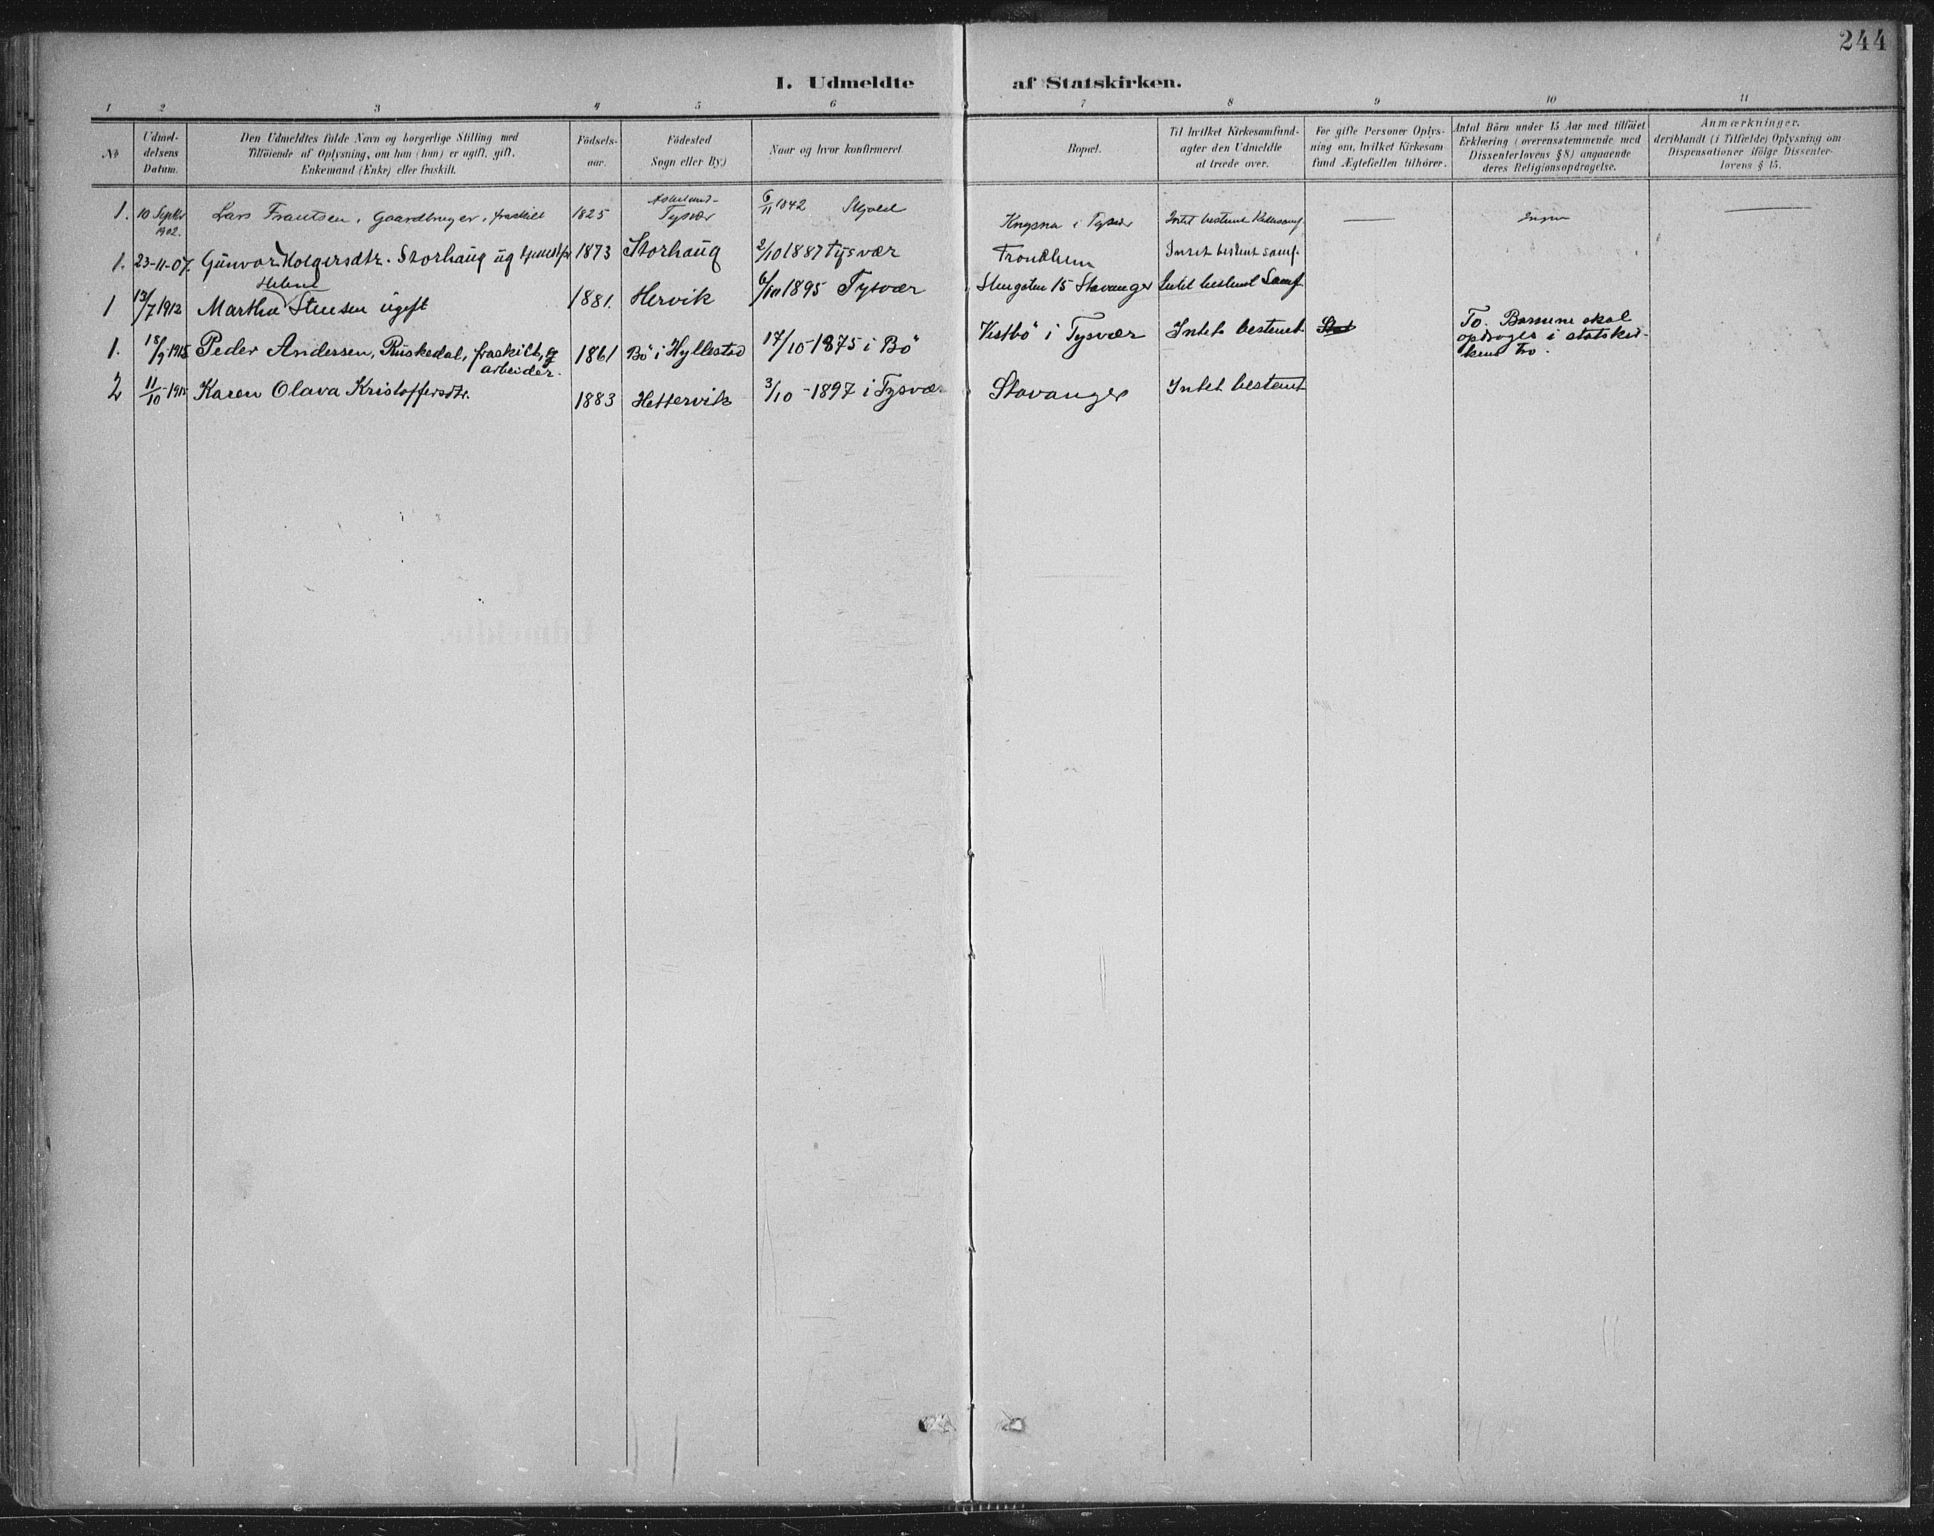 244
I. Udmeldte af Statskirken.
1 2 3 4 5 6 7 8 9 10 11
No
Udmel-
delsens
Datum.
Den Udmeldtes fulde Navn og borgerlige Stilling med
Tilföiende af Oplysning, om han (hun) er ugift, gift,
Enkemand (Enke) eller fraskilt.
Födsels-
aar.
Födested
Sogn eller By.)
Naar og hvor konfirmeret.
Bopæl.
Til hvilket Kirkesamfund
agter den Udmeldte
at træde over.
For gifte Personer Oplys-
ning om, hvilket Kirkesam
fund Ægtefællen tilhörer.
Antal Börn under 15 Aar med tilföiet
Erklæring (overensstemmende med
Dissenterlovens § 8) angaaende
deres Religionsopdragelse.
Anmærkninger.
deriblandt (i Tilfælde) Oplysning om
Dispensationer ifölge Dissenter-
lovens § 15.
1. 10 Septbr 1902. Lars Frantsen, Gaardbruger, fraskilt 1825 Tysvær 6/11 1842 Skjold i Tysvær Intet bestemt Engen
1. 23-11-07. Gunvor Holgersdtr. Storhaug ug 1873 Storhaug 2/10 1887 Tysvær Trondhem Intet bestemt samf.
Helene
1 13/7 1912 Martha Stensen ugift 1881. Hervik 6/10 1895 Tysvær 15 Stavanger Intet bestemt Samf
1. 18/9 1915 Peder Andersen, Ruskedal, fraskilt, 1861 Bö i Hyllestad 17/10-1875 i Bö Vestbö i Tysvær Intet bestemt To. Barnene skal
arbeider.
opdrages i statskir-
kens Tro.
2 11/10-1915 Karen Olava Kristoffersdtr. 1883 Hettervik 3/10-1897 i Tysvær Stavanger Intet bestemt